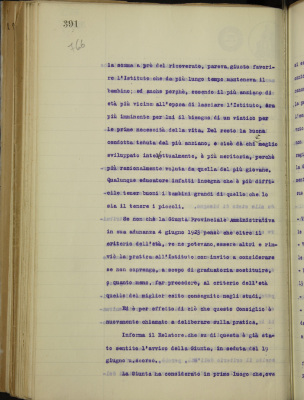 391
166
la somma a prò del ricoverato, pareva giusto favori-
re l'Istituto che da più lungo tempo sosteneva il
bambino; ed anche perchè, essendo il più anziano di
età più vicino all'epoca di lasciare l'Istituto, era
più imminente per lui il bisogno di un viatico per
le prime necessità della vita. Del resto la buona
condotta tenuta dal più anziano, e cioè da chi è meglio
sviluppato intellettualmente, è più meritoria, perchè
più razionalmente voluta da quella del più giovane.
Qualunque educatore infatti insegna che è più diffi-
cile tener buoni i bambini grandi di quello che lo
sia il tenere i piccoli.
Se non chè la Giunta Provinciale Amministrativa
in sua adunanza 4 giugno 1925 pensò che oltre il
criterio dell'età, ve ne potevano essere altri e rin-
viò la pratica all'Istituto con invito a considerare
se non convenga, a scopo di graduatoria sostituire,
o quanto meno, far precedere, al criterio dell'età
quello del miglior esito conseguito negli studi.
Ed è per effetto di ciò che questo Consiglio è
nuovamente chiamato a deliberare sulla pratica.
Informa il Relatore che su di questa è già sta-
to sentito l'avviso della Giunta, in seduta del 19
giugno u. scorso.
La Giunta ha considerato in primo luogo che, ove